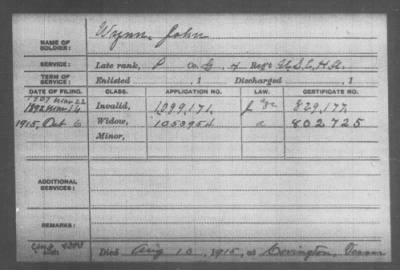 NAME OF SOLDIER: Wynn, John
SERVICE: Late rank, P Co. G, 4 Reg't U.S.C.H.A.
TERM OF SERVICE: Enlisted , 1 Discharged , 1
DATE OF FILING. CLASS. APPLICATION NO. LAW. CERTIFICATE NO.
1907 Mar 22
1892 Mar 14 Invalid, 1099,171. 829,177
1915, Oct 6 Widow, 1053954 802725
Minor,
ADDITIONAL SERVICES:
REMARKS:
Died Aug 10, 1915, at Covington, Tenn